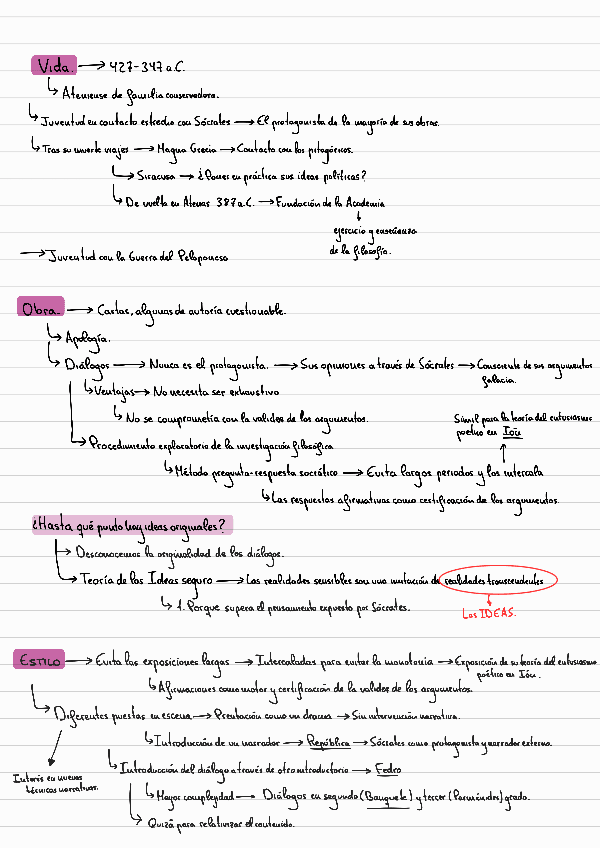 Vida. → 427-347 a.C.
↳ Ateniense de familia conservadora.
↳ Juventud en contacto estrecho con Sócrates → El protagonista de la mayoría de sus obras.
↳ Tras su muerte viajes → Magna Grecia → Contacto con los pitagóricos.
↳ Siracusa → ¿Poner en práctica sus ideas políticas?
↳ De vuelta en Atenas 387 a.C. → Fundación de la Academia
↓
ejercicio y enseñanza
de la filosofía.
→ Juventud con la Guerra del Peloponeso
Obra. → Cartas, algunas de autoría cuestionable.
↳ Apología.
↳ Diálogos → Nunca es el protagonista. → Sus opiniones a través de Sócrates → Consciente de sus argumentos
falacia.
↳ Ventajas → No necesita ser exhaustivo
↳ No se comprometía con la validez de los argumentos.
Símil para la teoría del entusiasmo
poético en Ión
↳ Procedimiento exploratorio de la investigación filosófica
↳ Método pregunta-respuesta socrático → Evita largos periodos y los intercala
↳ Las respuestas afirmativas como certificación de los argumentos.
¿Hasta qué punto hay ideas originales?
→ Desconocemos la originalidad de los diálogos.
→ Teoría de las Ideas seguro → Las realidades sensibles son una imitación de realidades transcendentes
↳ 1. Porque supera el pensamiento expuesto por Sócrates.
Las IDEAS.
ESTILO → Evita las exposiciones largas → Intercaladas para evitar la monotonía → Exposición de su teoría del entusiasmo
poético en Ión.
↳ Afirmaciones como motor y certificación de la validez de los argumentos.
↳ Diferentes puestas en escena → Presentación como un drama → Sin intervención narrativa.
↳ Introducción de un narrador → República → Sócrates como protagonista y narrador externo.
↳ Introducción del diálogo a través de otro introductorio → Fedro
Interés en nuevas
técnicas narrativas.
↳ Mayor complejidad → Diálogos en segundo (Banquete) y tercer (Parménides) grado.
↳ Quizá para relativizar el contenido.